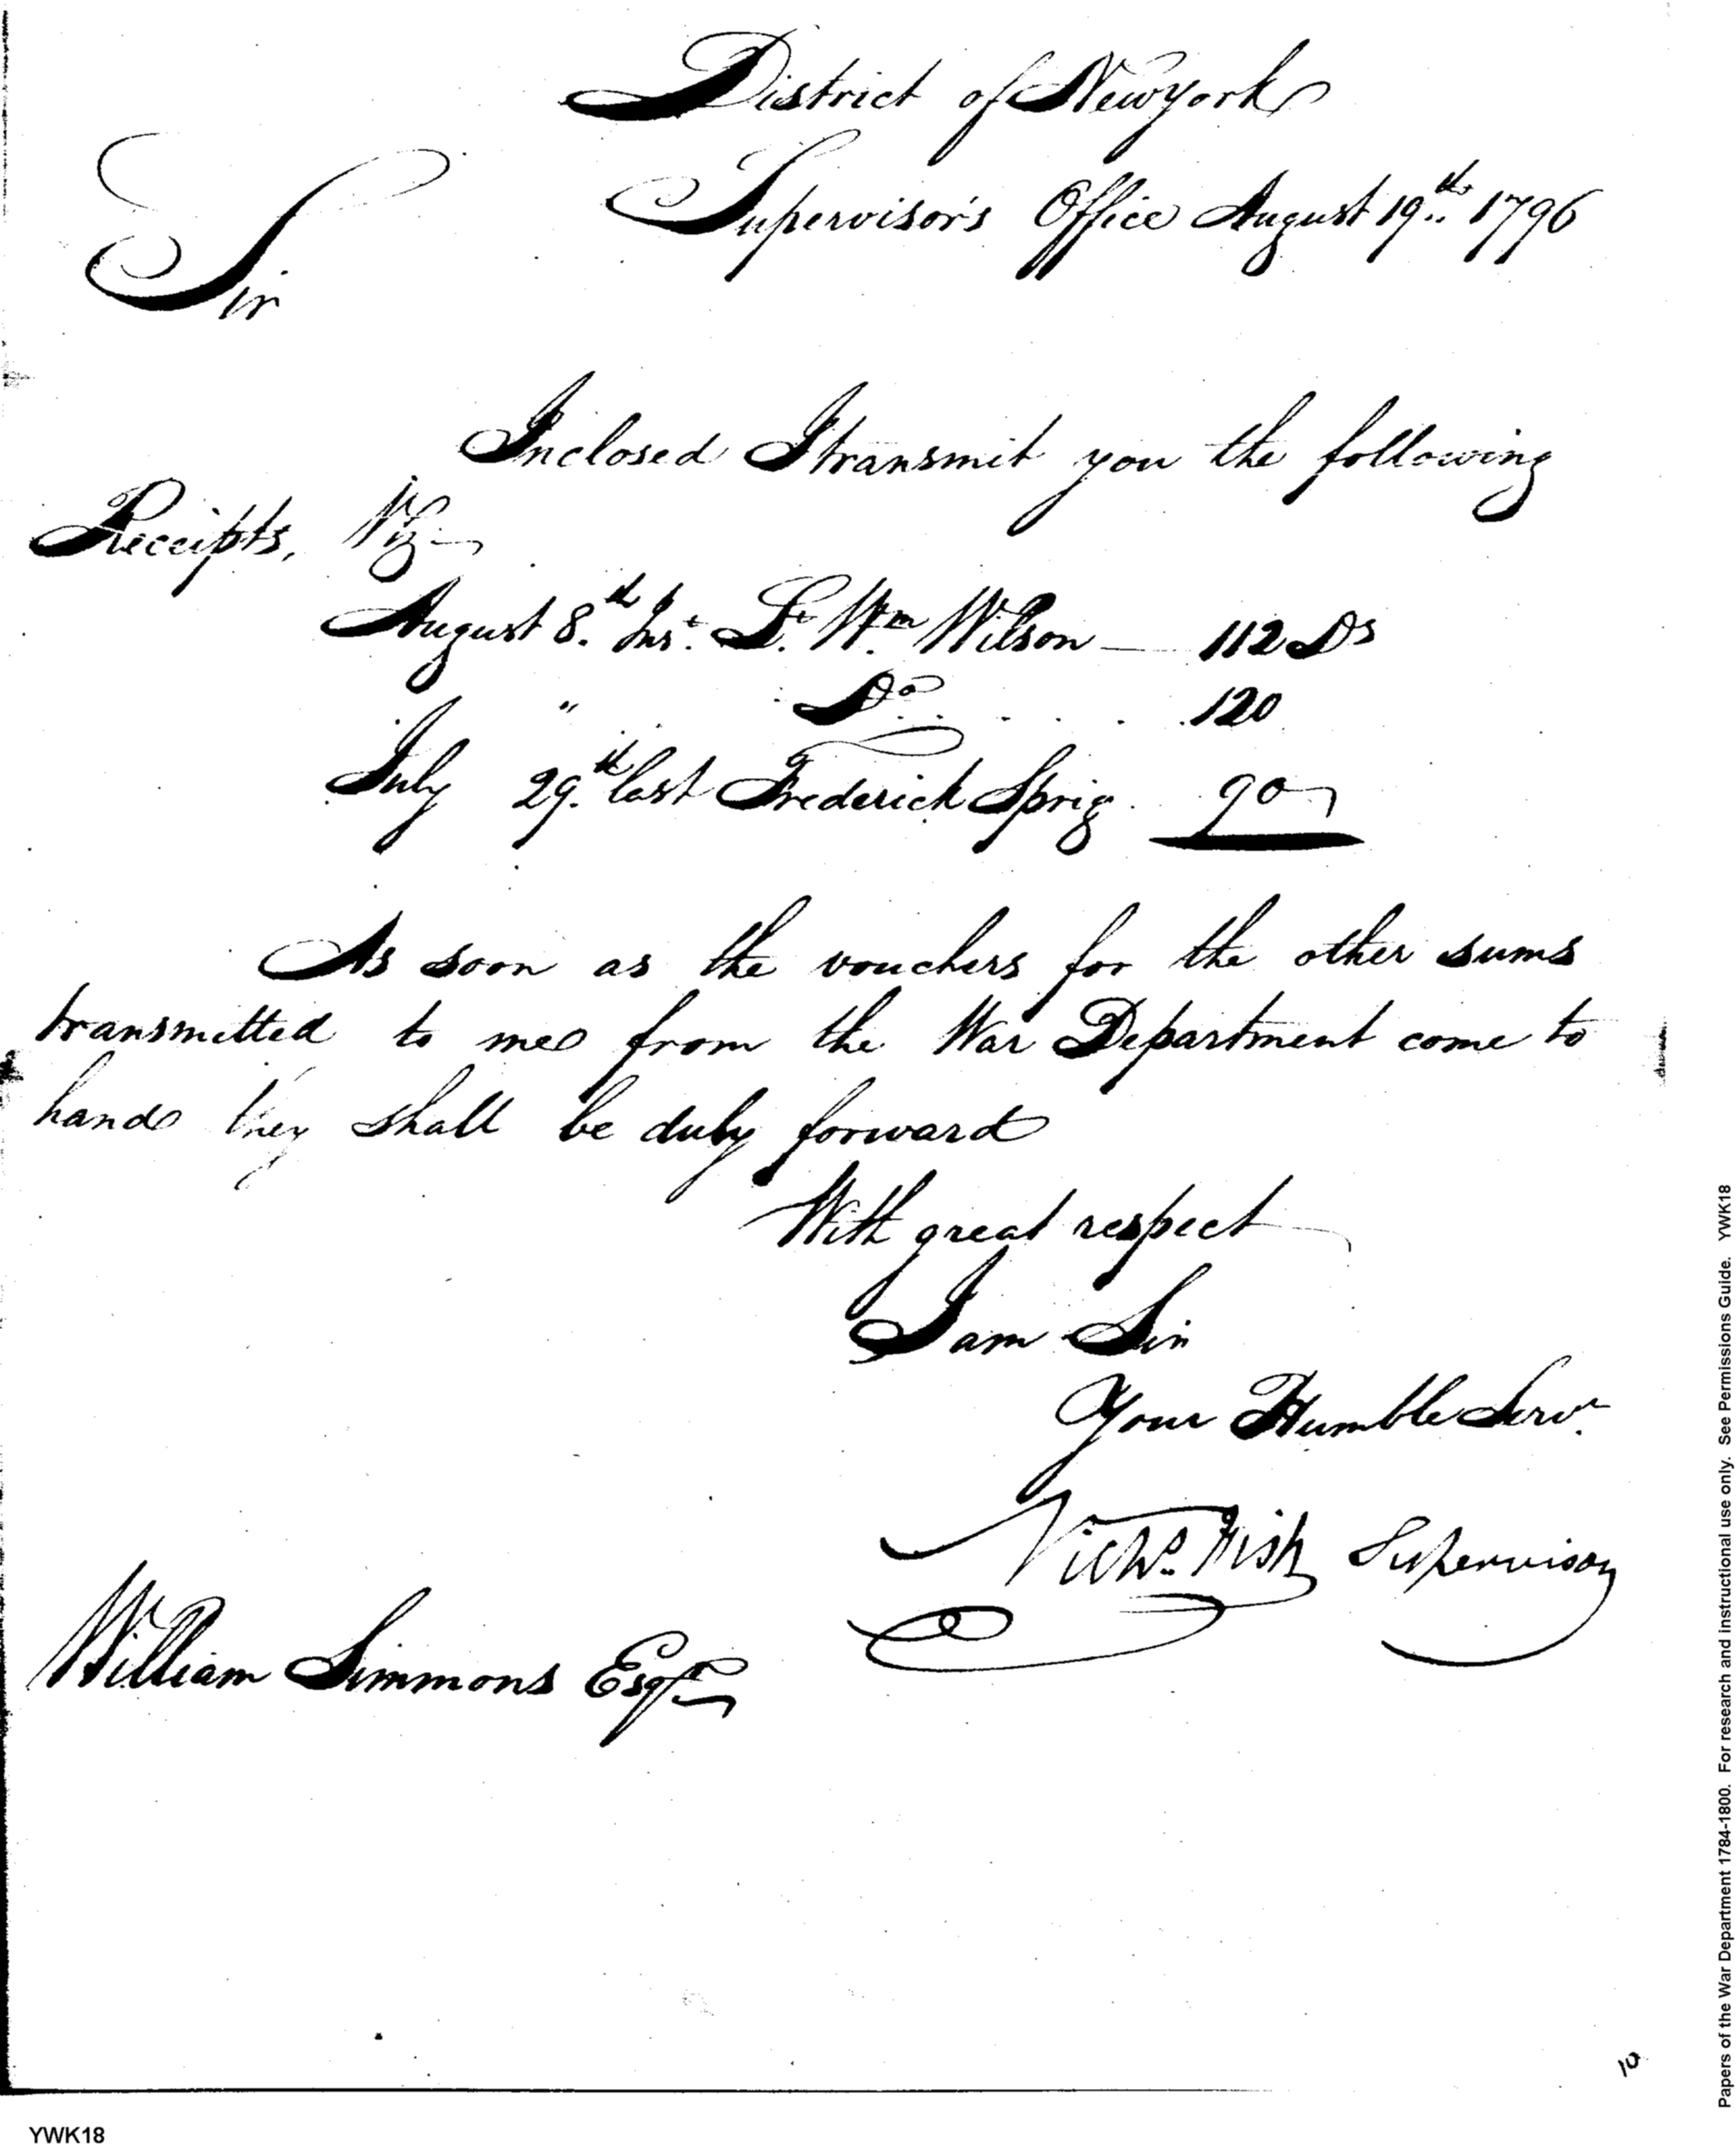 District of New York
Supervisor's Office August 19th 1796
Sir
Inclosed I transmit you the following
Receipts, Viz
August 8th Inst. Lt. Wm Wilson — 112 Ds
" Do . . . . . 120
July 29th last Frederick Sprig. 90
As soon as the vouchers for the other sums
transmitted to me from the War Department come to
hand they shall be duly forward
With great respect
I am Sir
Your Humble Servt
Nichs. Fish Supervisor
William Simmons Esqr
10
YWK18
Papers of the War Department 1784-1800. For research and instructional use only. See Permissions Guide. YWK18